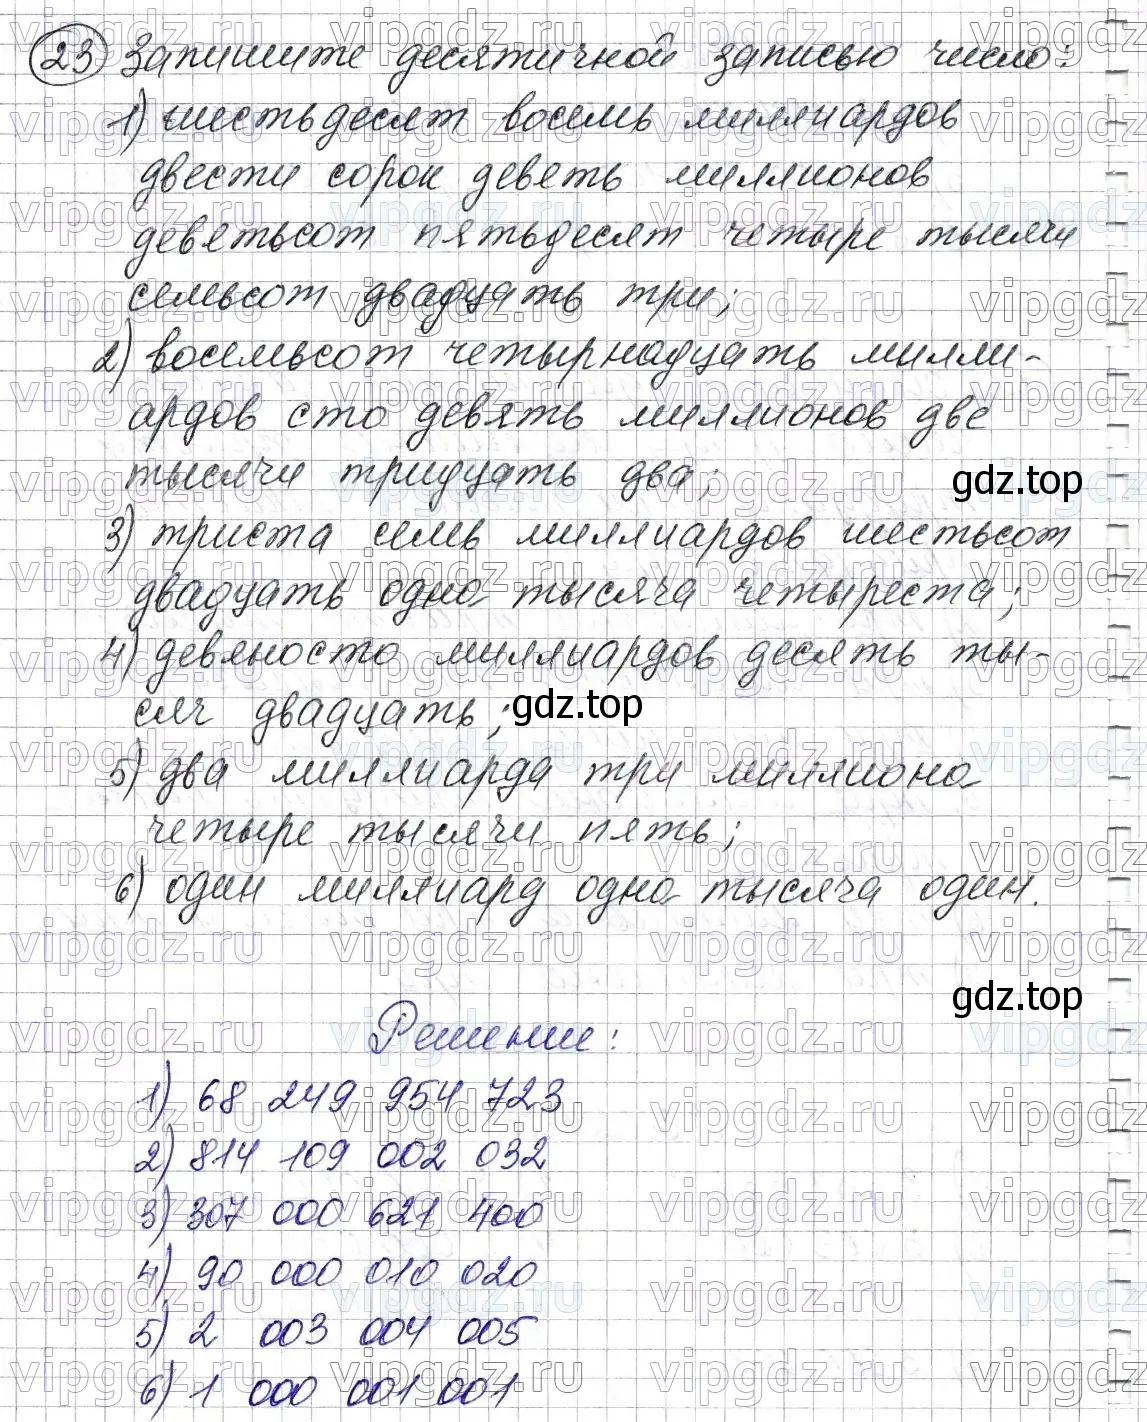 23 Запишите десятичной записью число:
1) шестьдесят восемь миллиардов
двести сорок деветь миллионов
деветьсот пятьдесят четыре тысячи
семьсот двадцать три;
2) восемьсот четырнадцать милли-
ардов сто девять миллионов две
тысячи тридцать два;
gdz.top
3) триста семь миллиардов шестьсот
двадцать одна тысяча четыреста;
4) девяносто миллиардов десять ты-
сяч двадцать;
gdz.top
5) два миллиарда три миллиона
четыре тысячи пять;
6) один миллиард одна тысяча один.
gdz.top
Решение:
1) 68 249 954 723
2) 814 109 002 032
3) 307 000 621 400
4) 90 000 010 020
5) 2 003 004 005
6) 1 000 001 001